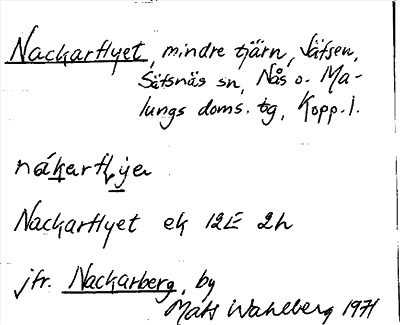 Nackarflyet, mindre tjärn, Sätsen,
Sätsnäs sn, Nås o. Ma-
lungs doms. tg, Kopp. l.
nákarflyea
Nackarflyet ek 12E 2h
jfr. Nackarberg, by
Mats Wahlberg 1971